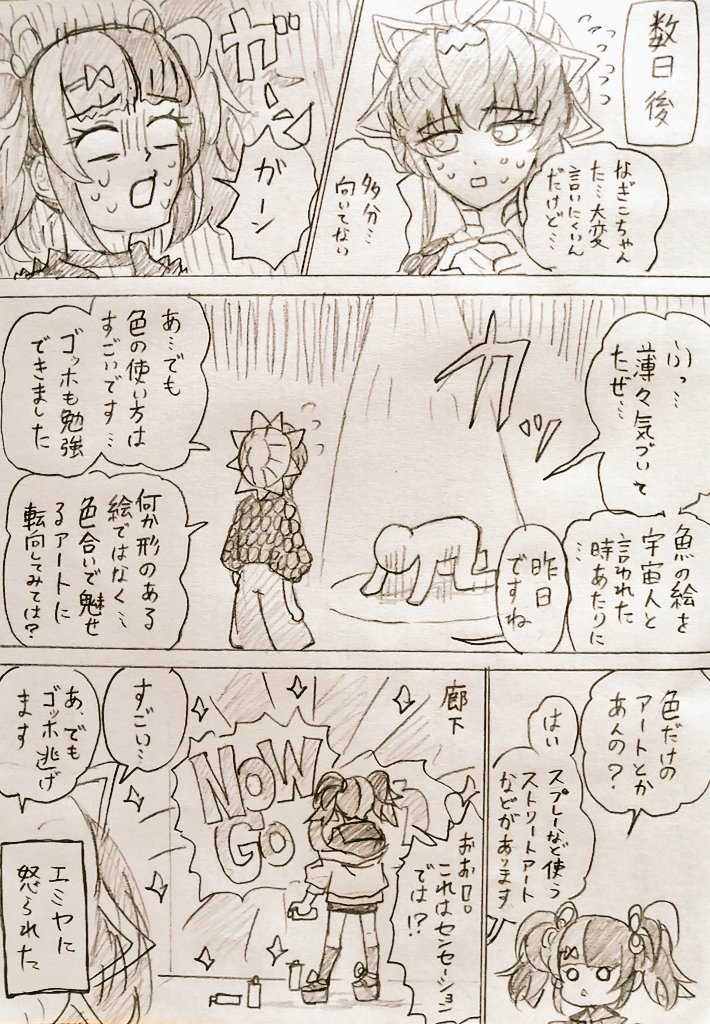 数日後
なぎこちゃん
た…大変
言いにくいん
だけど…
多分…
向いてない
ガーン
ガーン
ふっ…
薄々気づいて
たぜ…
魚の絵を
宇宙人と
言われた
時あたりに
…
昨日
ですね
ガクッ
あ…でも
色の使い方は
すごいです…
ゴッホも勉強
できました
何か形のある
絵ではなく…
色合いで魅せ
るアートに
転向してみては?
色だけの
アートとか
あんの?
はい
スプレーなど使う
ストリートアート
などがあります
廊下
NOW
GO
おお…
これはセンセーション
では!?
すごい…
あ、でも
ゴッホ逃げ
ます
エミヤに
怒られた